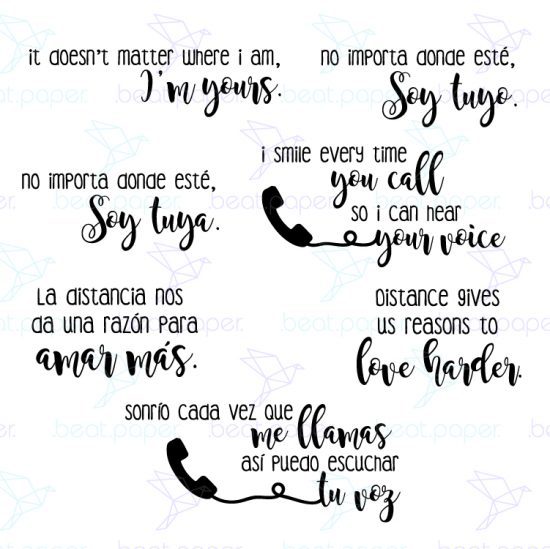 it doesn't matter where i am,
I'm yours.
no importa donde esté,
Soy tuyo.
no importa donde esté,
Soy tuya.
i smile every time
you call
so i can hear
your voice
La distancia nos
da una razón para
amar más.
Distance gives
us reasons to
love harder.
sonrío cada vez que
me llamas
así puedo escuchar
tu voz
.beat.paper.
.beat.paper.
.beat.paper.
.beat.paper.
.beat.paper.
.beat.paper.